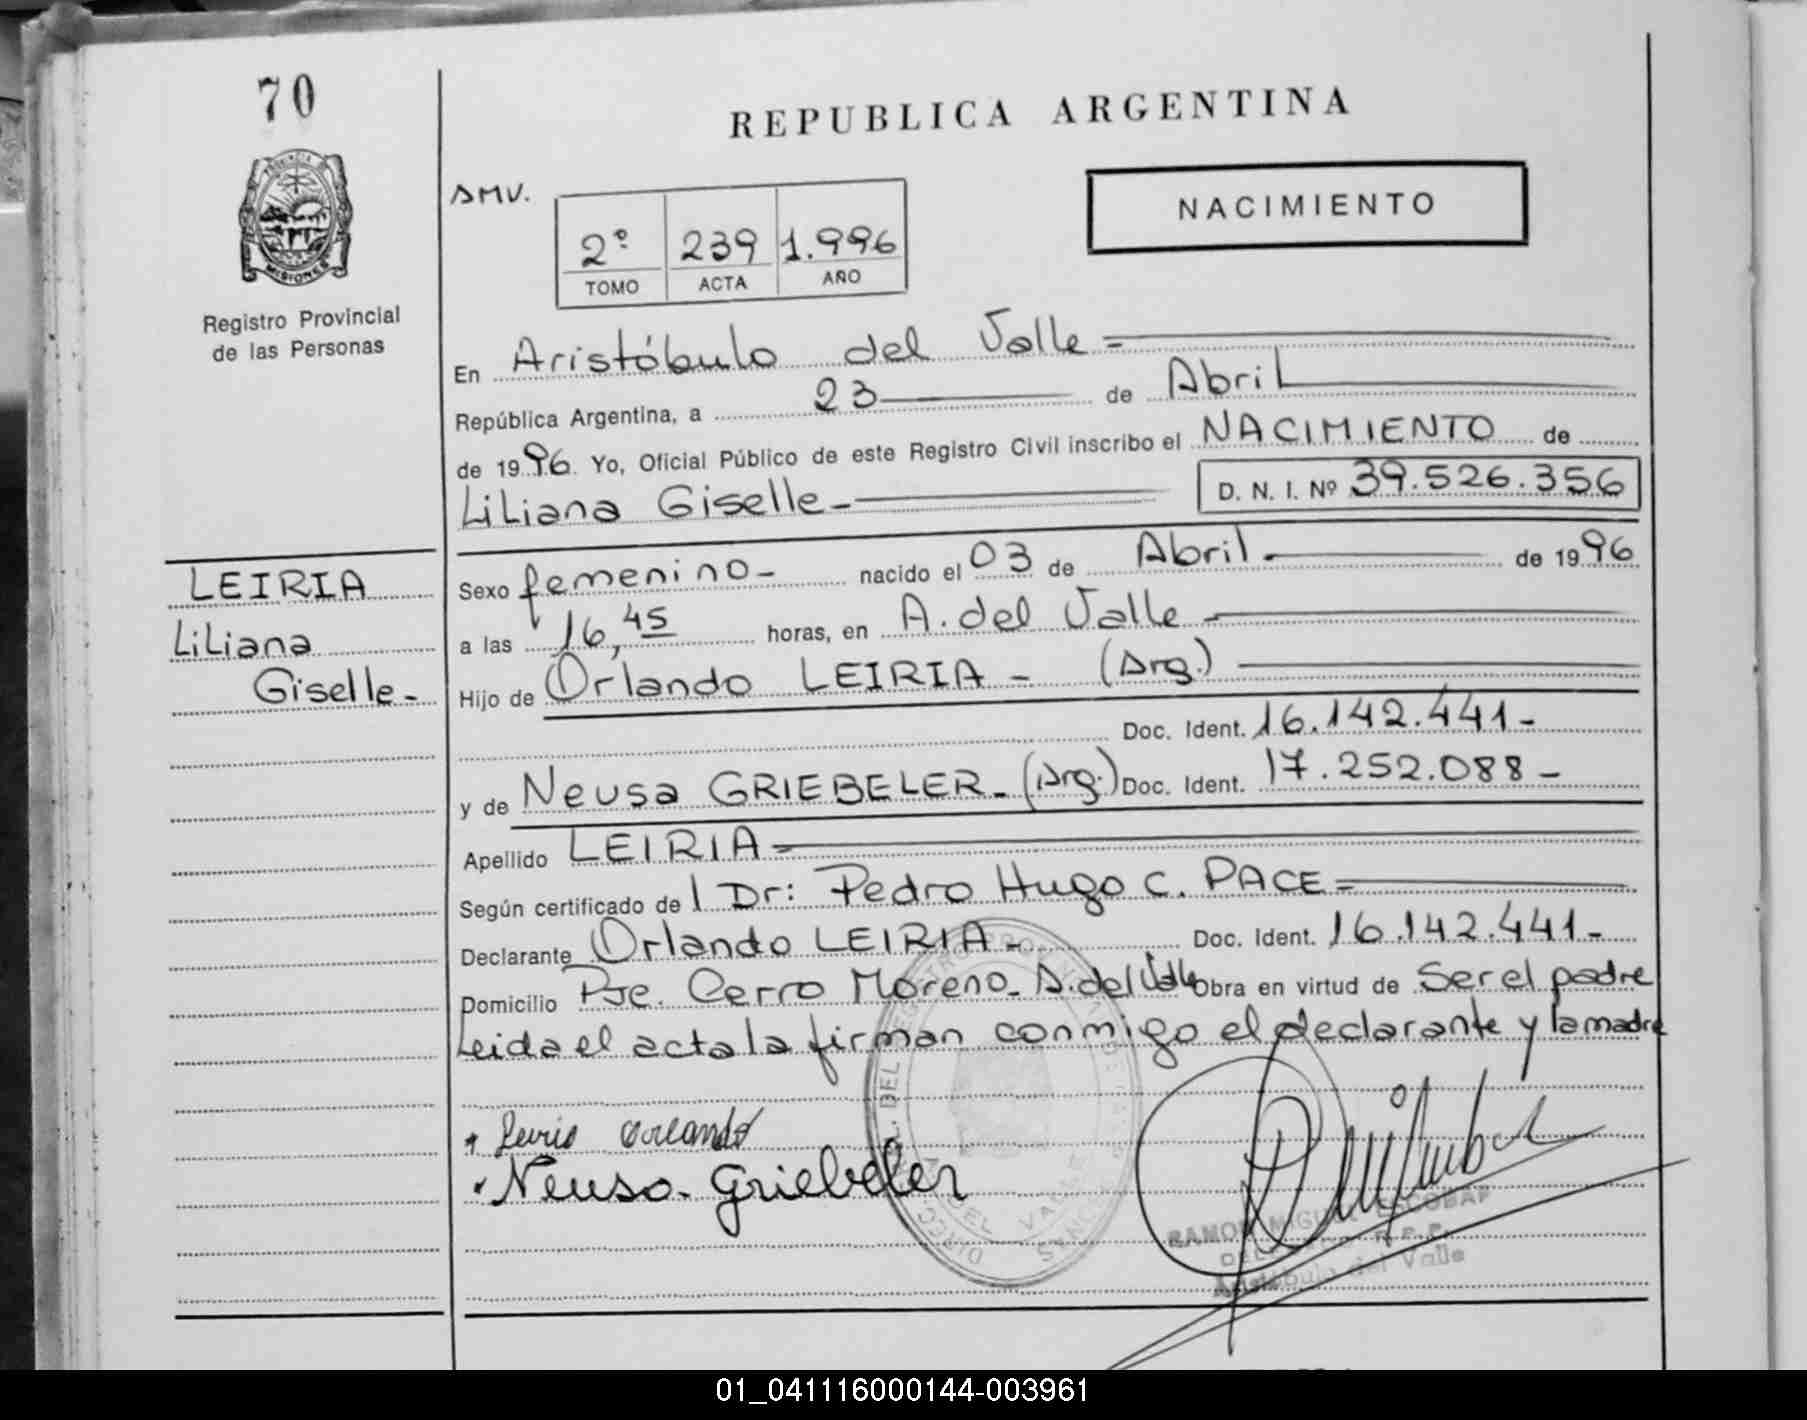 70
REPUBLICA ARGENTINA
PROVINCIA DE
MISIONES
Registro Provincial
de las Personas
AMV.
2º 239 1.996
TOMO ACTA AÑO
NACIMIENTO
En Aristóbulo del Valle
República Argentina, a 23 de Abril
de 1996. Yo, Oficial Público de este Registro Civil inscribo el NACIMIENTO de
Liliana Giselle- D. N. I. Nº 39.526.356
LEIRIA
Liliana
Giselle-
Sexo femenino- nacido el 03 de Abril- de 1996
a las 16,45 horas, en A. del Valle
Hijo de Orlando LEIRIA - (Arg.)
Doc. Ident. 16.142.441-
y de Neusa GRIEBELER- (Arg.) Doc. Ident. 17.252.088-
Apellido LEIRIA
Según certificado de l Dr: Pedro Hugo C. PACE
Declarante Orlando LEIRIA- Doc. Ident. 16.142.441-
Domicilio Pje. Cerro Moreno- A. del Valle Obra en virtud de Ser el padre
Leida el acta la firman conmigo el declarante y la madre
Leiria Orlando
Neusa Griebeler
RAMON MIGUEL ESCOBAR
Aristóbulo del Valle
01_041116000144-003961